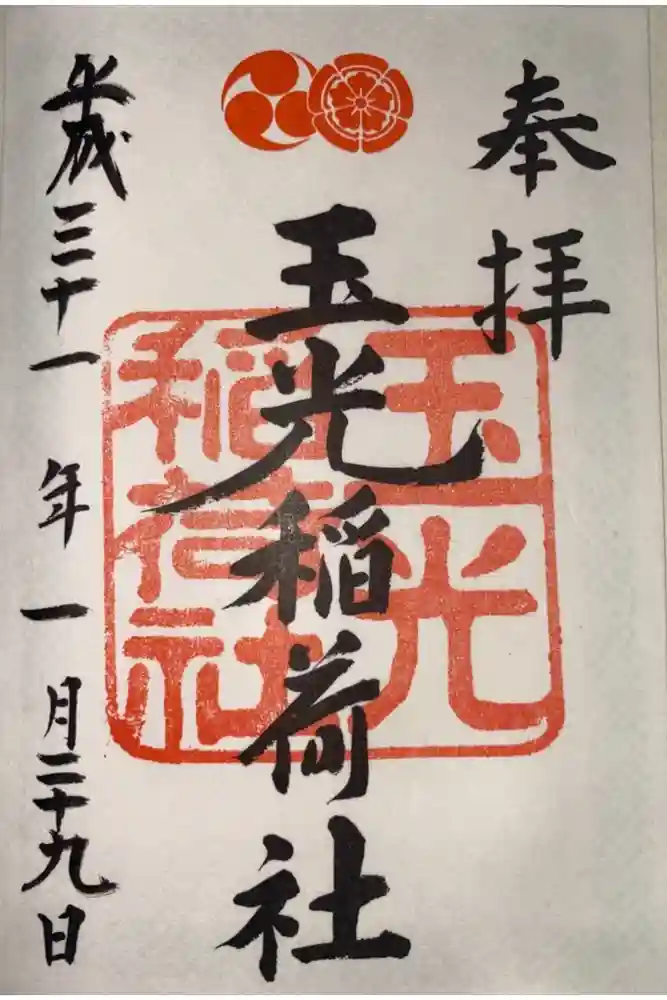 奉拝
玉光稲荷社
玉光
稲荷社
平成三十一年一月二十九日